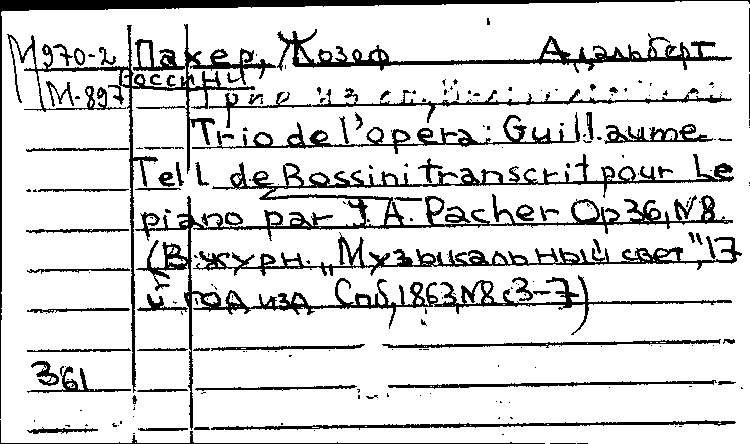 М970-2 Пахер, Жозеф Адальберт
Россини
М-897 Трио из оп.
Trio de l'opéra: Guillaume
Tell de Rossini transcrit pour le
piano par J. A. Pacher Op 36, N8.
(В журн. „Музыкальный свет", 17
й год изд Спб, 1863, N8 с 3-7)
361